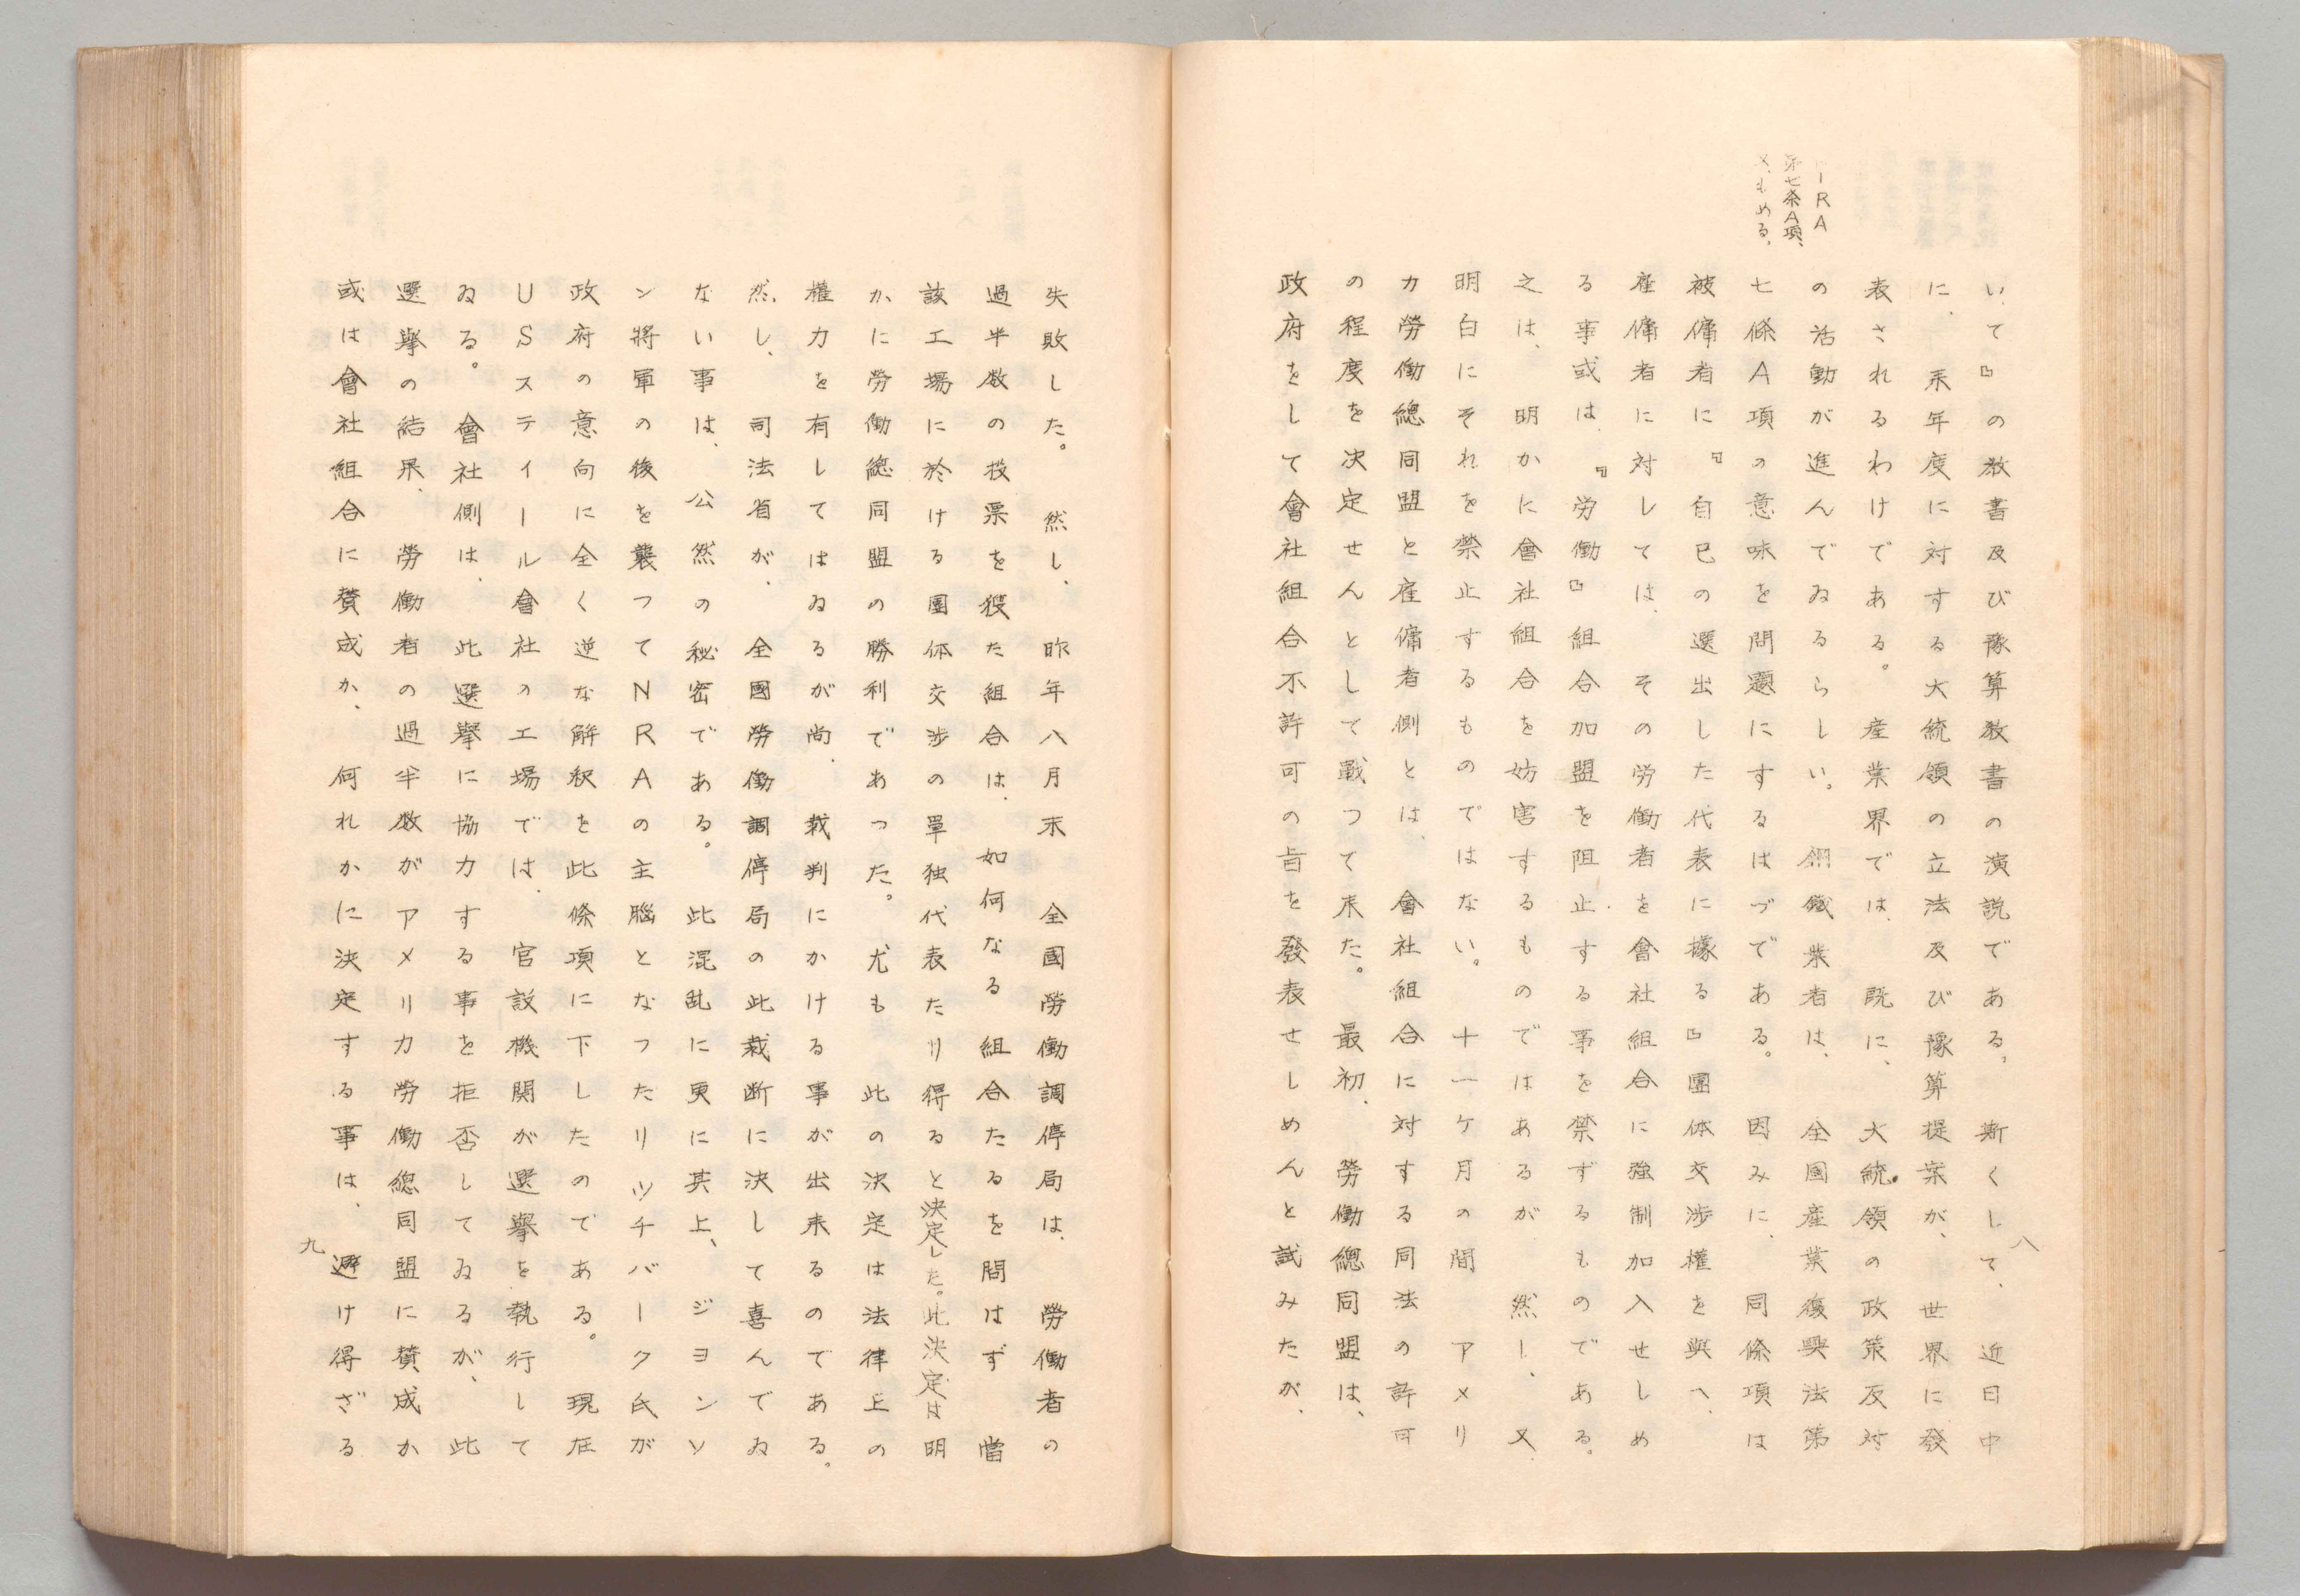 八
いて』の教書及び豫算教書の演説である。斯くして、近日中
に、来年度に対する大統領の立法及び豫算提案が、世界に發
表されるわけである。産業界では、既に、大統領の政策反対
の活動が進んでゐるらしい。鋼鐵業者は、全国産業復興法第
七條A項の意味を問題にするはづである。因みに、同條項は
被傭者に『自己の選出した代表に據る』團体交渉權を與へ、
雇傭者に対しては、その労働者を會社組合に強制加入せしめ
る事或は、『労働』組合加盟を阻止する事を禁ずるものである。
之は、明かに會社組合を妨害するものではあるが然し、又
明白にそれを禁止するものではない。十一ケ月の間アメリ
カ勞働總同盟と雇傭者側とは、會社組合に対する同法の許可
の程度を決定せんとして戰つて来た。最初、勞働總同盟は、
政府をして會社組合不許可の旨を發表せしめんと試みたが、
RA
第七条A項、
もめる。
失敗した。然し、昨年八月末全國勞働調停局は、勞働者の
過半数の投票を獲た組合は、如何なる組合たるを問はず當
該工場に於ける團体交渉の單独代表たり得ると決定した。此決定は明
かに勞働總同盟の勝利であつた。尤も此の決定は法律上の
權力を有してはゐるが尚、裁判にかける事が出来るのである。
然し、司法省が、全國勞働調停局の此裁断に決して喜んでゐ
ない事は、公然の秘密である。此混乱に更に其上、ジヨンソ
ン將軍の後を襲つてNRAの主腦となつたリツチバーク氏が
政府の意向に全く逆な解釈を此條項に下したのである。現在
USステイール會社の工場では、官設機関が選擧を執行して
ゐる。會社側は、此選擧に協力する事を拒否してゐるが、此
選擧の結果、勞働者の過半数がアメリカ勞働總同盟に賛成か
或は會社組合に賛成か、何れかに決定する事は、避け得ざる
九